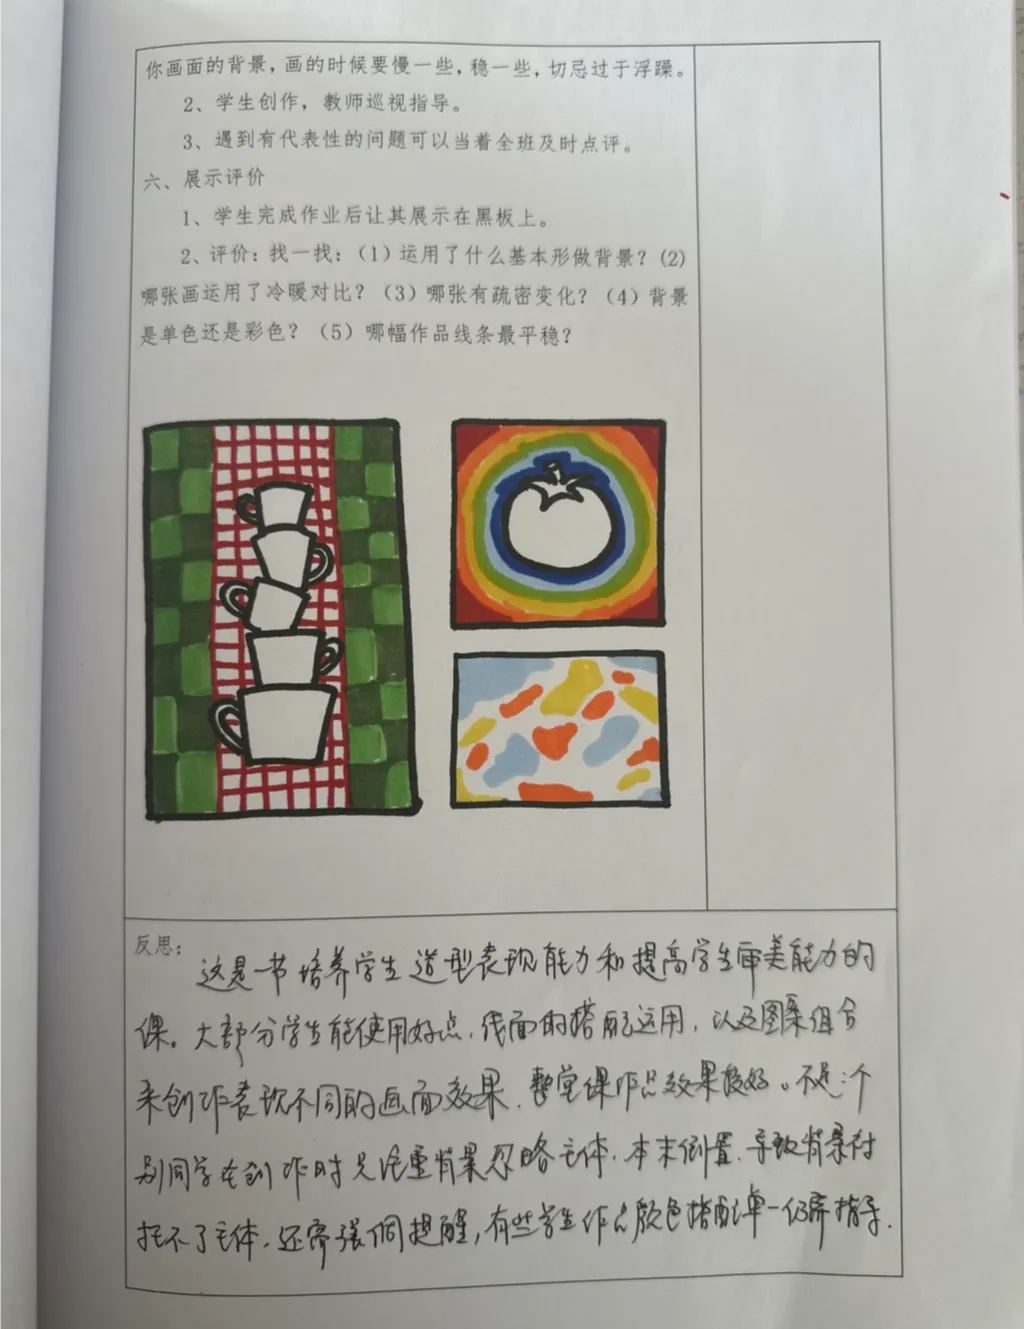 你画面的背景，画的时候要慢一些，稳一些，切忌过于浮躁。
2、学生创作，教师巡视指导。
3、遇到有代表性的问题可以当着全班及时点评。
六、展示评价
1、学生完成作业后让其展示在黑板上。
2、评价：找一找：（1）运用了什么基本形做背景？（2）
哪张画运用了冷暖对比？（3）哪张有疏密变化？（4）背景
是单色还是彩色？（5）哪幅作品线条最平稳？
反思：
这是一节培养学生造型表现能力和提高学生审美能力的
课。大部分学生能使用好点，线面的搭配运用，以及图案组合
来创作表现不同的画面效果，整堂课作品效果较好。不足：个
别同学在创作时只注重背景忽略主体，本末倒置，导致背景衬
托不了主体，还需强调提醒，有些学生作品颜色搭配单一仍需指导。